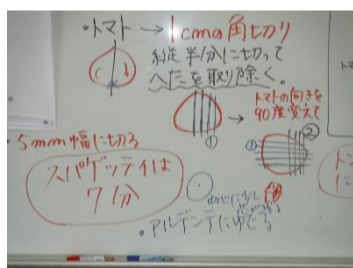 ・トマト → 1cmの角切り
縦半分に切って
へたを取り除く。
トマトの向きを
90度変えて
①
①
②
・5mm幅に切る
スパゲッティは
7分
・アルデンテにゆでる